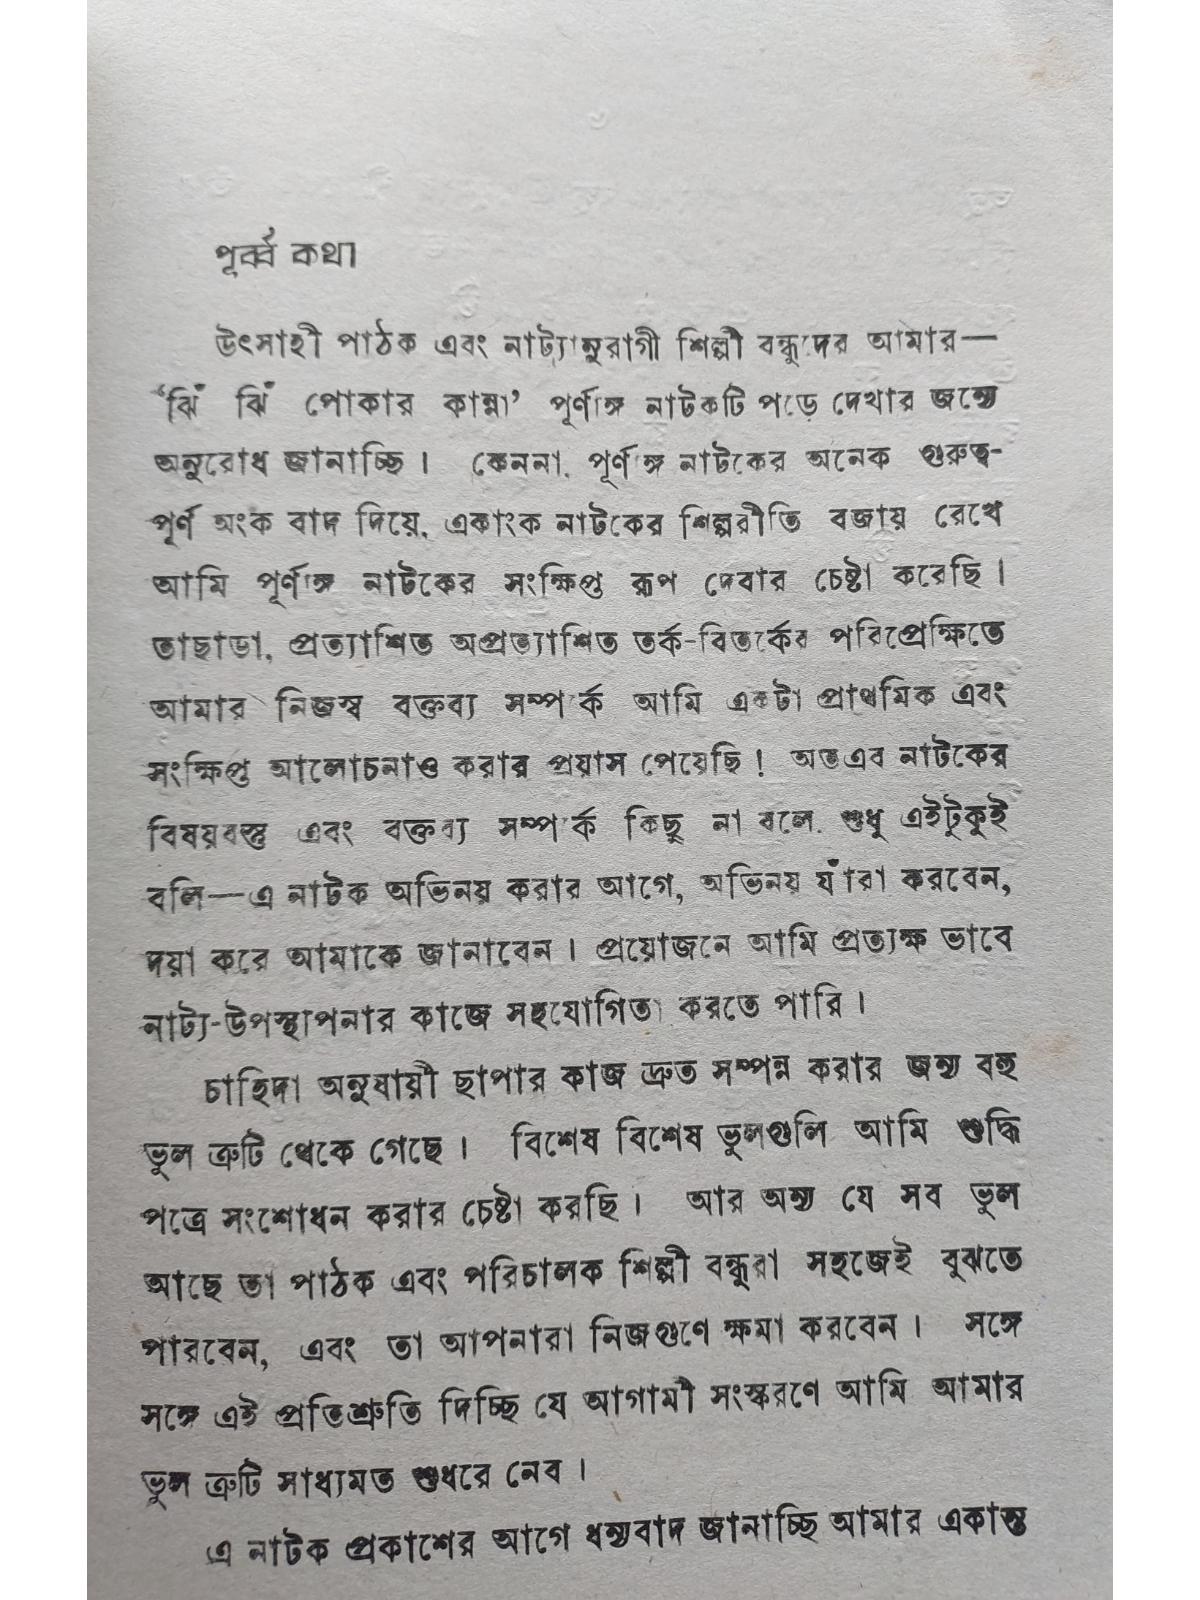 পূর্ব্ব কথা
উৎসাহী পাঠক এবং নাট্যানুরাগী শিল্পী বন্ধুদের আমার—
‘ঝিঁ ঝিঁ পোকার কান্না’ পূর্ণাঙ্গ নাটকটি পড়ে দেখার জন্যে
অনুরোধ জানাচ্ছি। কেননা, পূর্ণাঙ্গ নাটকের অনেক গুরুত্ব-
পূর্ণ অংক বাদ দিয়ে, একাংক নাটকের শিল্পরীতি বজায় রেখে
আমি পূর্ণাঙ্গ নাটকের সংক্ষিপ্ত রূপ দেবার চেষ্টা করেছি।
তাছাড়া, প্রত্যাশিত অপ্রত্যাশিত তর্ক-বিতর্কের পরিপ্রেক্ষিতে
আমার নিজস্ব বক্তব্য সম্পর্ক আমি একটা প্রাথমিক এবং
সংক্ষিপ্ত আলোচনাও করার প্রয়াস পেয়েছি! অতএব নাটকের
বিষয়বস্তু এবং বক্তব্য সম্পর্ক কিছু না বলে, শুধু এইটুকুই
বলি—এ নাটক অভিনয় করার আগে, অভিনয় যাঁরা করবেন,
দয়া করে আমাকে জানাবেন। প্রয়োজনে আমি প্রত্যক্ষ ভাবে
নাট্য-উপস্থাপনার কাজে সহযোগিতা করতে পারি।
চাহিদা অনুযায়ী ছাপার কাজ দ্রুত সম্পন্ন করার জন্য বহু
ভুল ত্রুটি থেকে গেছে। বিশেষ বিশেষ ভুলগুলি আমি শুদ্ধি
পত্রে সংশোধন করার চেষ্টা করছি। আর অন্য যে সব ভুল
আছে তা পাঠক এবং পরিচালক শিল্পী বন্ধুরা সহজেই বুঝতে
পারবেন, এবং তা আপনারা নিজগুণে ক্ষমা করবেন। সঙ্গে
সঙ্গে এই প্রতিশ্রুতি দিচ্ছি যে আগামী সংস্করণে আমি আমার
ভুল ত্রুটি সাধ্যমত শুধরে নেব।
এ নাটক প্রকাশের আগে ধন্যবাদ জানাচ্ছি আমার একান্ত